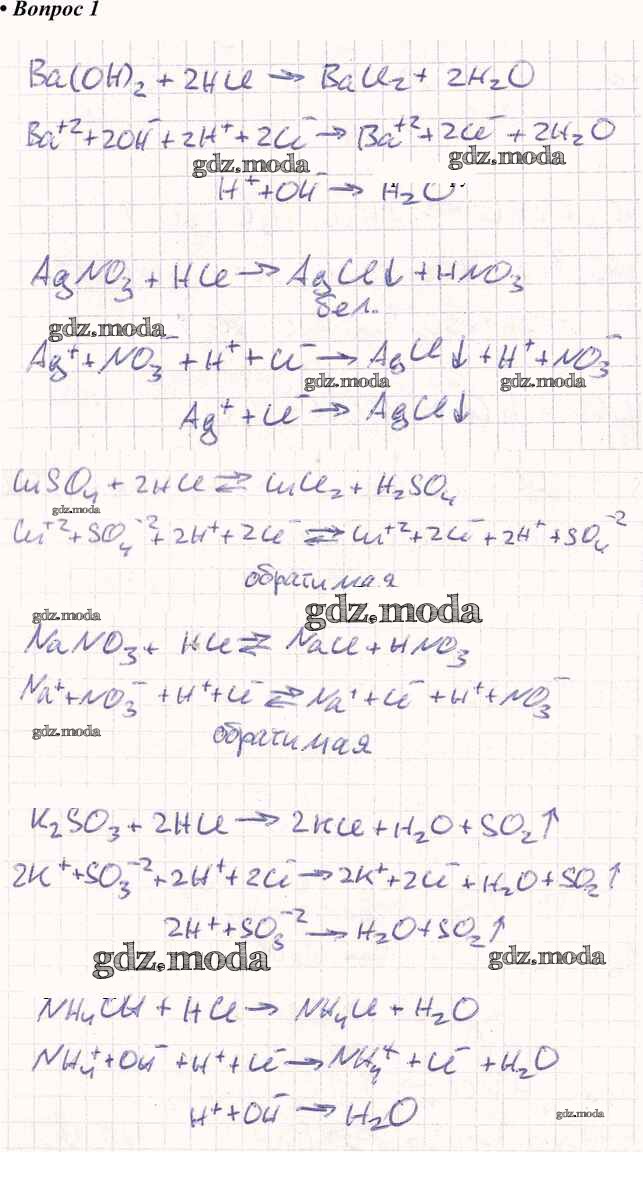 • Вопрос 1
Ba(OH)₂ + 2HCl → BaCl₂ + 2H₂O
Ba⁺² + 2OH⁻ + 2H⁺ + 2Cl⁻ → Ba⁺² + 2Cl⁻ + 2H₂O
gdz.moda gdz.moda
H⁺ + OH⁻ → H₂O
AgNO₃ + HCl → AgCl↓ + HNO₃
бел.
gdz.moda
Ag⁺ + NO₃⁻ + H⁺ + Cl⁻ → AgCl↓ + H⁺ + NO₃⁻
gdz.moda gdz.moda
Ag⁺ + Cl⁻ → AgCl↓
CuSO₄ + 2HCl ⇄ CuCl₂ + H₂SO₄
gdz.moda
Cu⁺² + SO₄⁻² + 2H⁺ + 2Cl⁻ ⇄ Cu⁺² + 2Cl⁻ + 2H⁺ + SO₄⁻²
обратимая
gdz.moda gdz.moda
NaNO₃ + HCl ⇄ NaCl + HNO₃
Na⁺ + NO₃⁻ + H⁺ + Cl⁻ ⇄ Na⁺ + Cl⁻ + H⁺ + NO₃⁻
gdz.moda
обратимая
K₂SO₃ + 2HCl → 2KCl + H₂O + SO₂↑
2K⁺ + SO₃⁻² + 2H⁺ + 2Cl⁻ → 2K⁺ + 2Cl⁻ + H₂O + SO₂↑
2H⁺ + SO₃⁻² → H₂O + SO₂↑
gdz.moda gdz.moda
NH₄OH + HCl → NH₄Cl + H₂O
NH₄⁺ + OH⁻ + H⁺ + Cl⁻ → NH₄⁺ + Cl⁻ + H₂O
H⁺ + OH⁻ → H₂O
gdz.moda